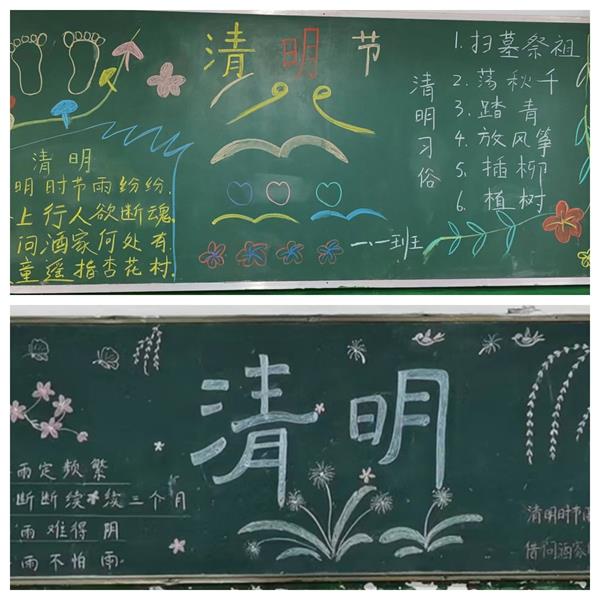 清明节
清明
明时节雨纷纷.
上行人欲断魂
问酒家何处有
童遥指杏花村.
清明习俗
1.扫墓祭祖
2.荡秋千
3.踏青
4.放风筝
5.插柳
6.植树
一.一班
清明
雨定频繁
断断续续三个月
雨难得阴
雨不怕雨
清明时节
借问酒家